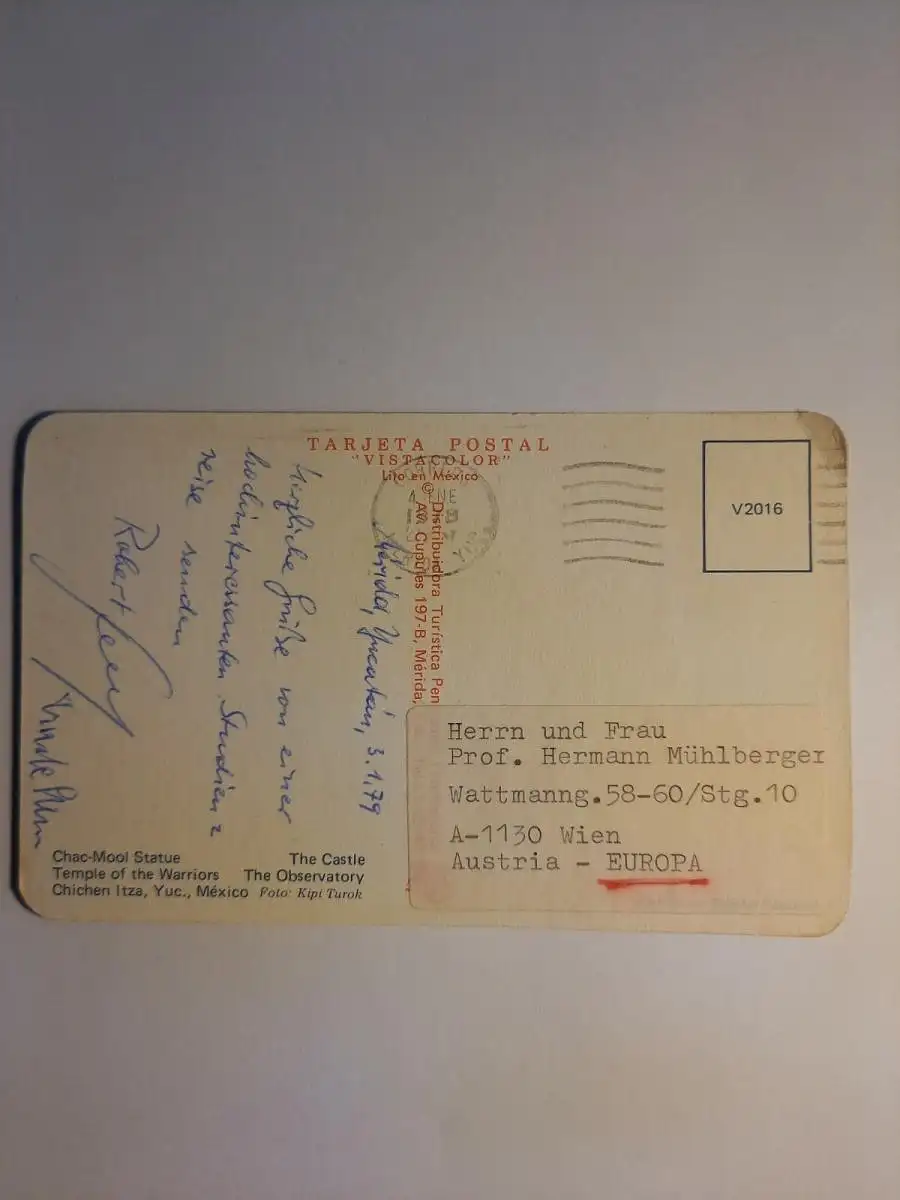 TARJETA POSTAL
"VISTACOLOR"
Lito en México
© Distribuidora Turística Pen
Av. Cupules 197-B, Mérida,
V2016
Mérida, Yucatán, 3.1.79
Herzliche Grüße von einer
hochinteressanten Studien=
reise senden
Robert
Herrn und Frau
Prof. Hermann Mühlberger
Wattmanng.58-60/Stg.10
A-1130 Wien
Austria - EUROPA
Chac-Mool Statue The Castle
Temple of the Warriors The Observatory
Chichen Itza, Yuc., México Foto: Kipi Turok